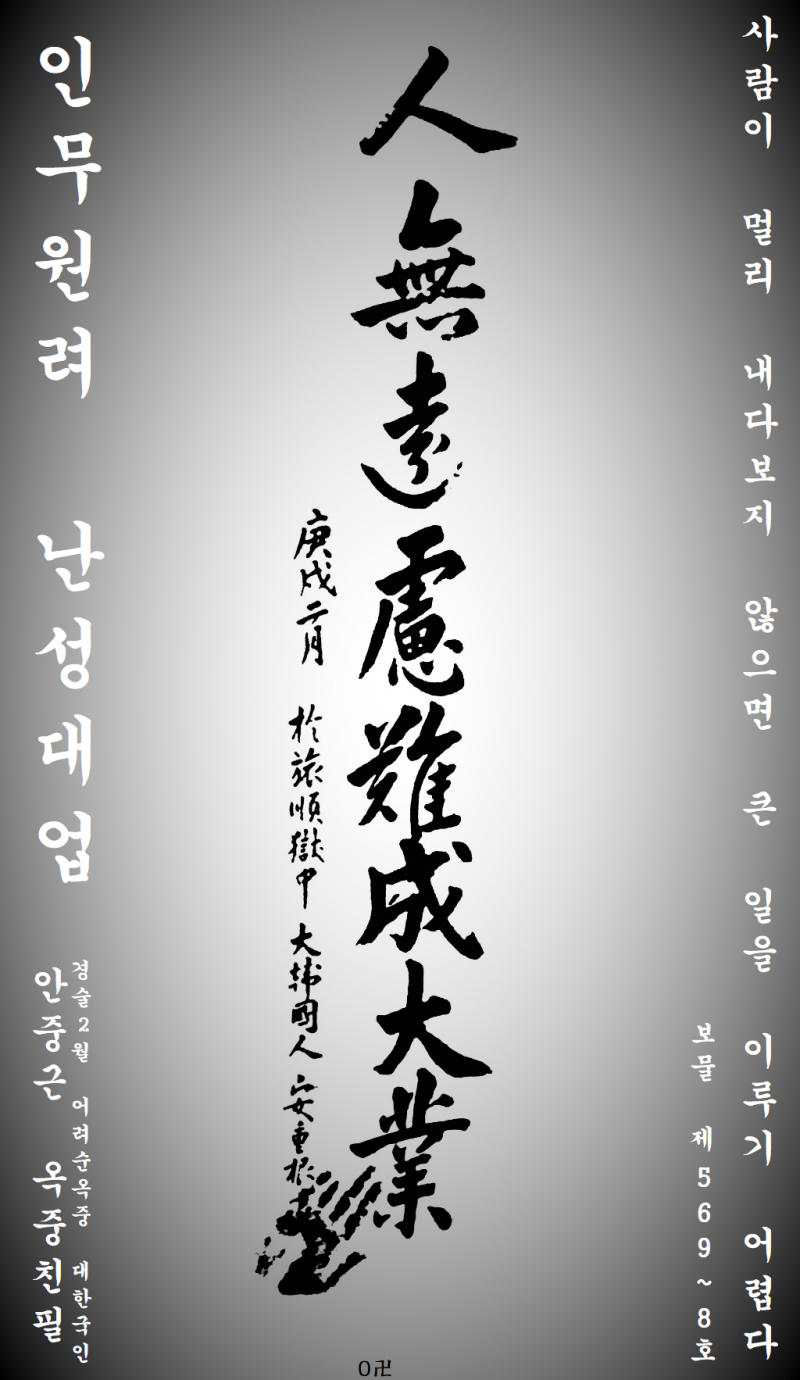 사람이 멀리 내다보지 않으면 큰 일을 이루기 어렵다
보물 제569~8호
人無遠慮難成大業
庚戌二月 於旅順獄中 大韓國人 安重根 書
인무원려 난성대업
경술2월 어려순옥중 대한국인
안중근 옥중친필
0卍